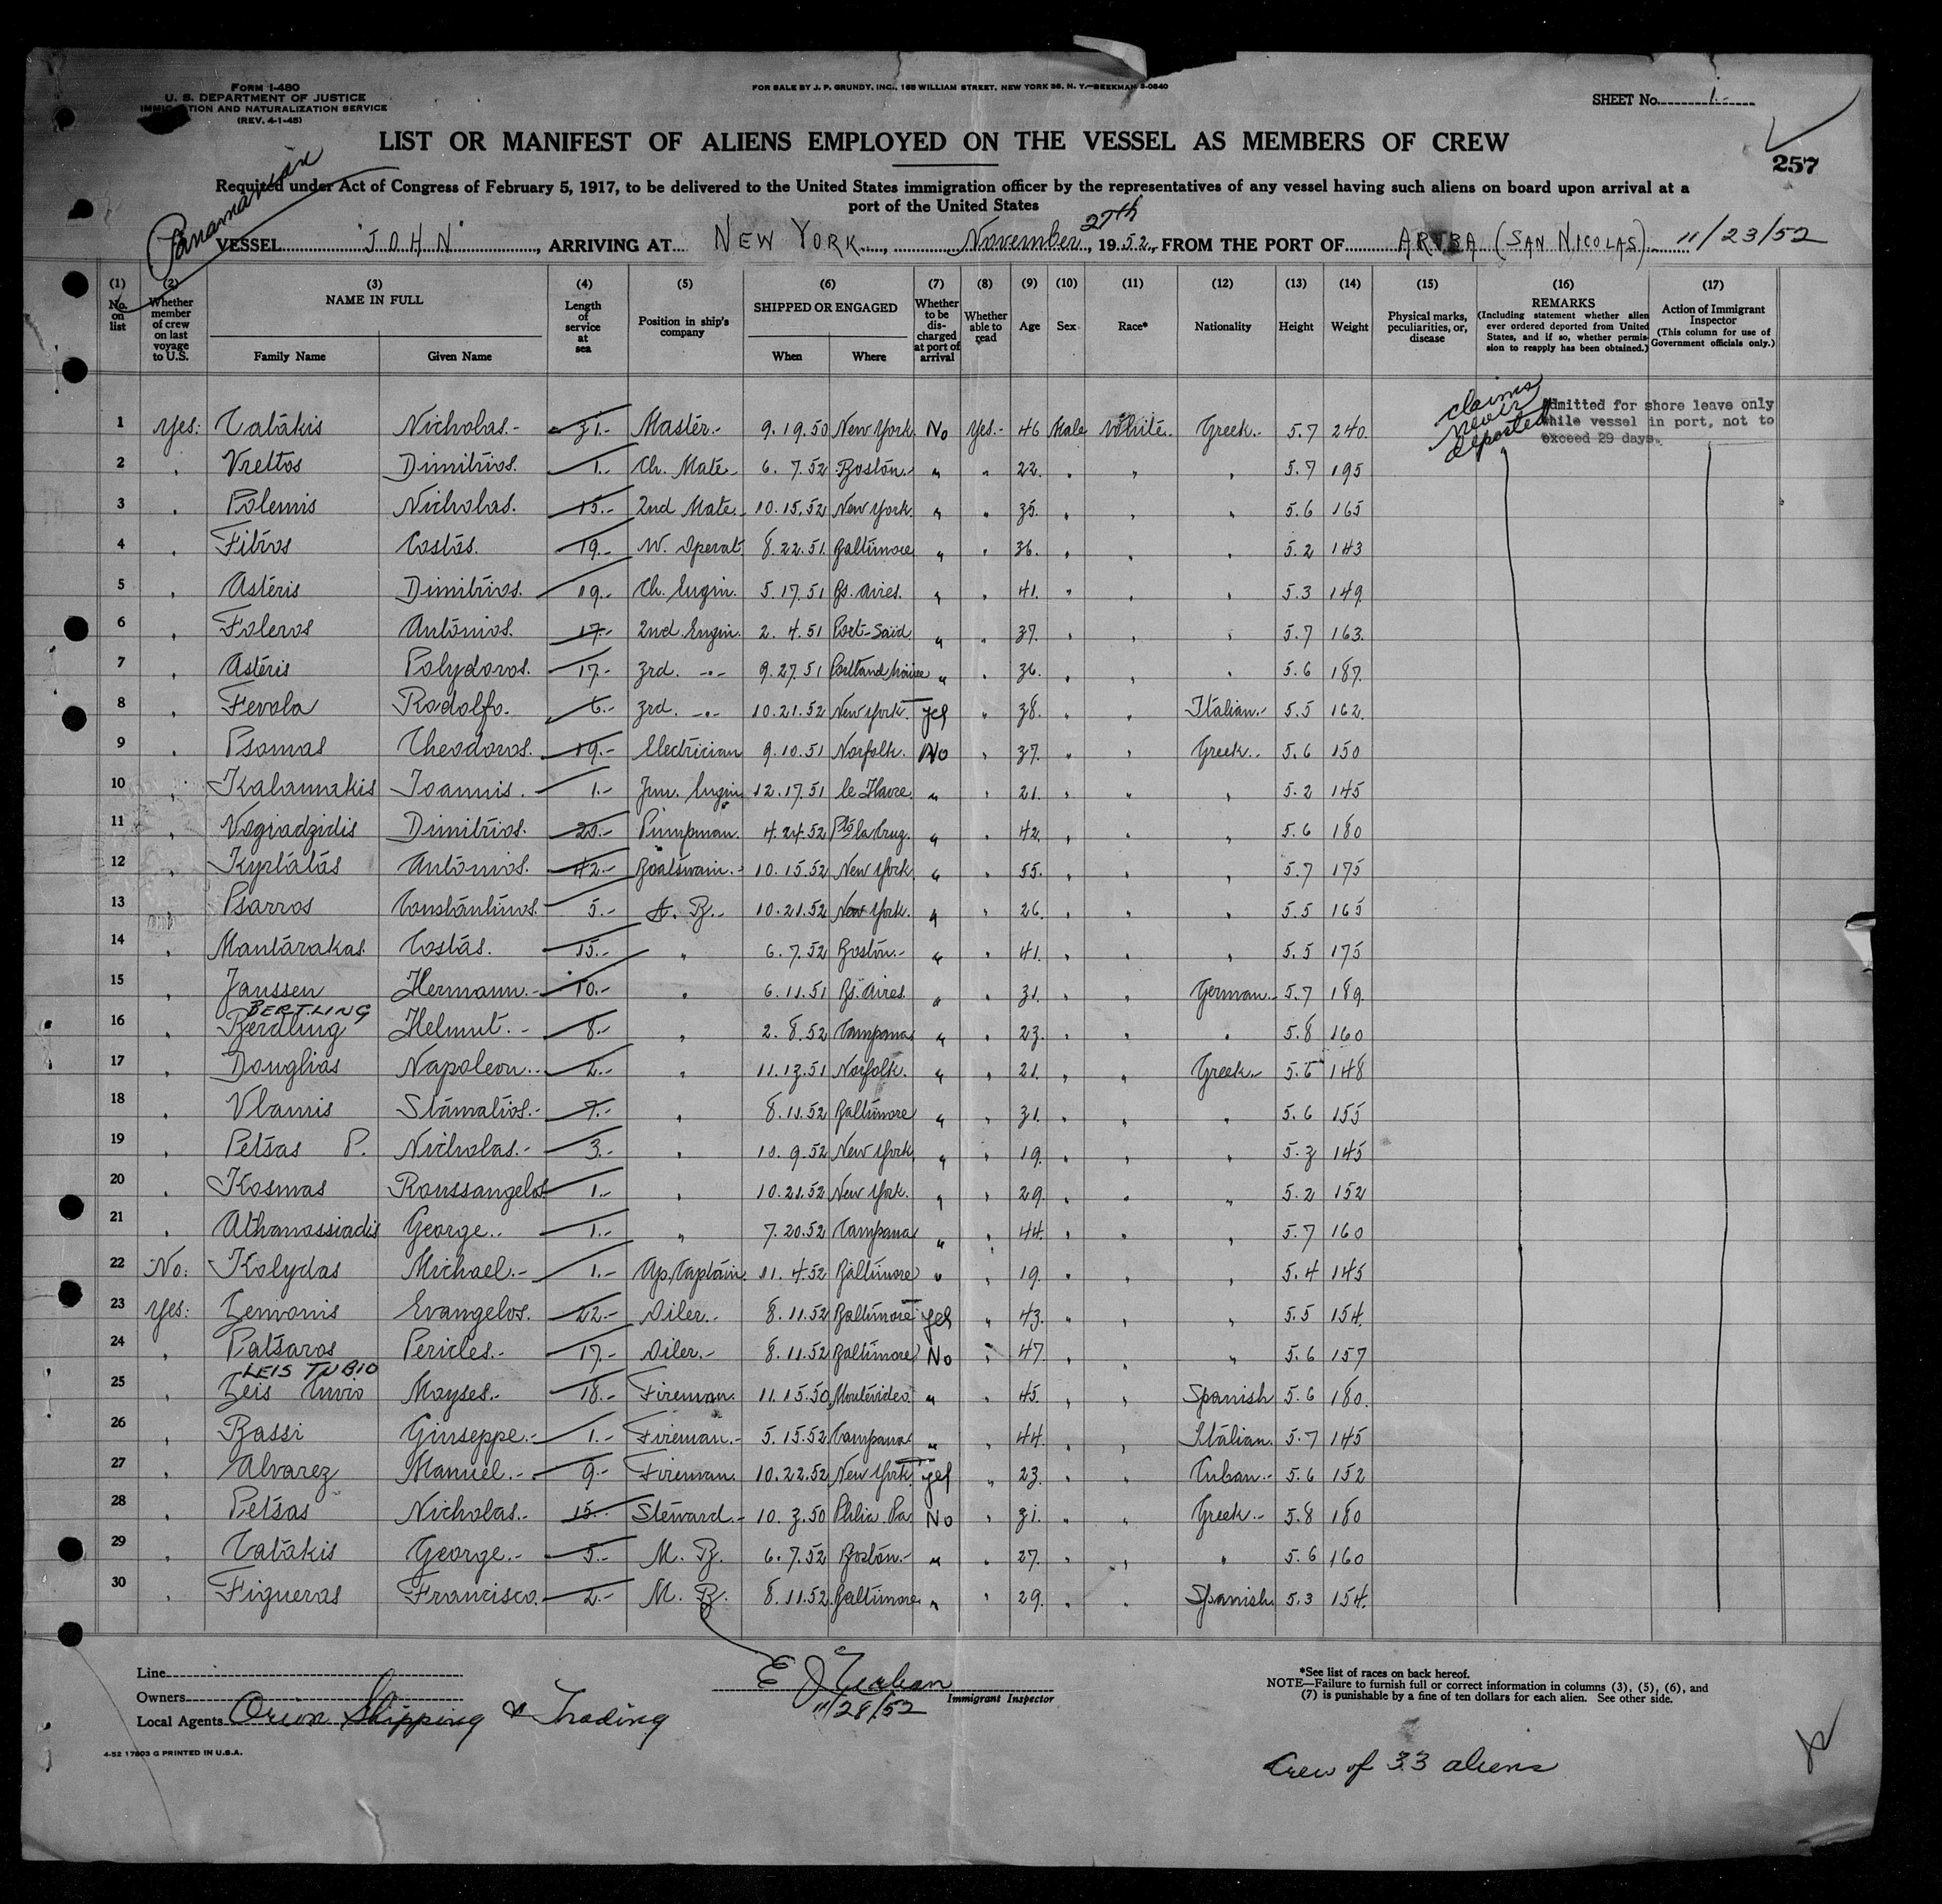 FORM I-480
U. S. DEPARTMENT OF JUSTICE
IMMIGRATION AND NATURALIZATION SERVICE
(REV. 4-1-45)
FOR SALE BY J. P. GRUNDY, INC., 165 WILLIAM STREET, NEW YORK 38, N. Y.—BEEKMAN 3-0640
SHEET No. 1.-
LIST OR MANIFEST OF ALIENS EMPLOYED ON THE VESSEL AS MEMBERS OF CREW
257
Required under Act of Congress of February 5, 1917, to be delivered to the United States immigration officer by the representatives of any vessel having such aliens on board upon arrival at a
port of the United States
Panamanian
VESSEL "JOHN", ARRIVING AT NEW YORK, November 27th, 1952, FROM THE PORT OF ARUBA (SAN NICOLAS) 11/23/52
(1) (2) (3) (4) (5) (6) (7) (8) (9) (10) (11) (12) (13) (14) (15) (16) (17)
No. on list
Whether member of crew on last voyage to U.S.
NAME IN FULL
Family Name Given Name
Length of service at sea
Position in ship's company
SHIPPED OR ENGAGED
When Where
Whether to be discharged at port of arrival
Whether able to read
Age
Sex
Race*
Nationality
Height
Weight
Physical marks, peculiarities, or, disease
REMARKS
(Including statement whether alien ever ordered deported from United States, and if so, whether permission to reapply has been obtained.)
Action of Immigrant Inspector
(This column for use of Government officials only.)
claims never deported
Admitted for shore leave only
while vessel in port, not to
exceed 29 days.
1 Yes: Tatákis Nicholas.- 31.- Master.- 9.19.50 New York No Yes.- 46 Male White. Greek.- 5.7 240.
2 " Vrettos Dimitrios. 1.- Ch. Mate- 6. 7.52 Boston.- " " 22. " " " 5.7 195
3 " Polemis Nicholas. 15.- 2nd Mate- 10.15.52 New York. " " 35. " " " 5.6 165
4 " Filros Costas. 19.- W. Operat. 8.22.51 Baltimore " " 36. " " " 5.2 143
5 " Asteris Dimitrios. 19.- Ch. Engin. 5.17.51 Bs. Aires. " " 41. " " " 5.3 149
6 " Foleros Antonios. 17.- 2nd. Engin. 2. 4.51 Port-Said " " 37. " " " 5.7 163.
7 " Asteris Polydoros. 17.- 3rd. -"- 9.27.51 Portland Maine " " 36. " " " 5.6 187.
8 " Fevola Rodolfo. 6.- 3rd. -"- 10.21.52 New York. Yes " 38. " " Italian.- 5.5 162.
9 " Psomas Theodoros. 19.- Electrician 9.10.51 Norfolk. No " 37. " " Greek.- 5.6 150
10 " Kalannakis Ioannis. 1.- Jun. Engin 12.17.51 le Havre. " " 21. " " " 5.2 145
11 " Vogiadzidis Dimitrios. 20.- Pumpman. 4.24.52 Pto la Cruz. " " 42. " " " 5.6 180
12 " Kyrtatas Antonios. 42.- Boatswain.- 10.15.52 New York " " 55. " " " 5.7 175
13 " Psarros Constantinos. 5.- A. B.- 10.21.52 New York. " " 26. " " " 5.5 165
14 " Mantarakas. Costas. 15.- " 6. 7.52 Boston.- " " 41. " " " 5.5 175
15 " Janssen Hermann.- 10.- " 6.11.51 Bs. Aires. " " 31. " " German.- 5.7 189.
BERTLING
16 " Berdling Helmut.- 8.- " 2. 8.52 Campana " " 23. " " " 5.8 160
17 " Douglias Napoleon.- 2.- " 11.13.51 Norfolk. " " 21. " " Greek.- 5.6 148
18 " Vlamis Stamatios.- 7.- " 8.11.52 Baltimore " " 31. " " " 5.6 155
19 " Petsas P. Nicholas.- 3.- " 10. 9.52 New York " " 19. " " " 5.3 145
20 " Kosmas Roussangelos 1.- " 10.21.52 New York. " " 29. " " " 5.2 152
21 " Athanassiadis George.. 1.- " 7.20.52 Campana " " 44. " " " 5.7 160
22 No: Kolydas Michael.- 1.- Ap. Captain. 11. 4.52 Baltimore " " 19. " " " 5.4 145
23 Yes: Zemonis Evangelos. 22.- Oiler.- 8.11.52 Baltimore Yes " 43. " " " 5.5 154.
24 " Patsaros Pericles.- 17.- Oiler.- 8.11.52 Baltimore No " 47. " " " 5.6 157
LEIS TUBIO
25 " Zeis Tuvio Moyses.- 18.- Fireman. 11.15.50 Montevideo. " " 45. " " Spanish 5.6 180.
26 " Bassi Giuseppe.- 1.- Fireman.- 5.15.52 Campana " " 44. " " Italian. 5.7 145
27 " Alvarez Manuel.- 9.- Fireman. 10.22.52 New York Yes " 23. " " Cuban.- 5.6 152
28 " Petsas Nicholas.- 15.- Steward.- 10. 3.50 Phlia. Pa No " 31. " " Greek.- 5.8 180
29 " Tatákis George.- 5.- M. B. 6. 7.52 Boston.- " " 27. " " " 5.6 160
30 " Figueras Francisco. 2.- M. B. 8.11.52. Baltimore. " " 29. " " Spanish. 5.3 154.
Line
Owners
Local Agents Orion Shipping & Trading
Immigrant Inspector
11/28/52
*See list of races on back hereof.
NOTE—Failure to furnish full or correct information in columns (3), (5), (6), and
(7) is punishable by a fine of ten dollars for each alien. See other side.
4-52 17803 G PRINTED IN U.S.A.
Crew of 33 aliens